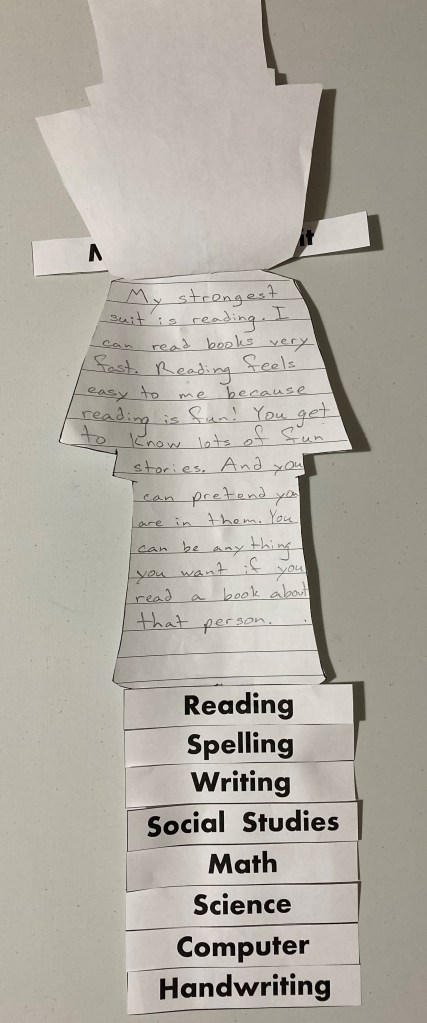 My strongest
suit is reading. I
can read books very
fast. Reading feels
easy to me because
reading is fun! You get
to know lots of fun
stories. And you
can pretend you
are in them. You
can be any thing
you want if you
read a book about
that person.
Reading
Spelling
Writing
Social Studies
Math
Science
Computer
Handwriting